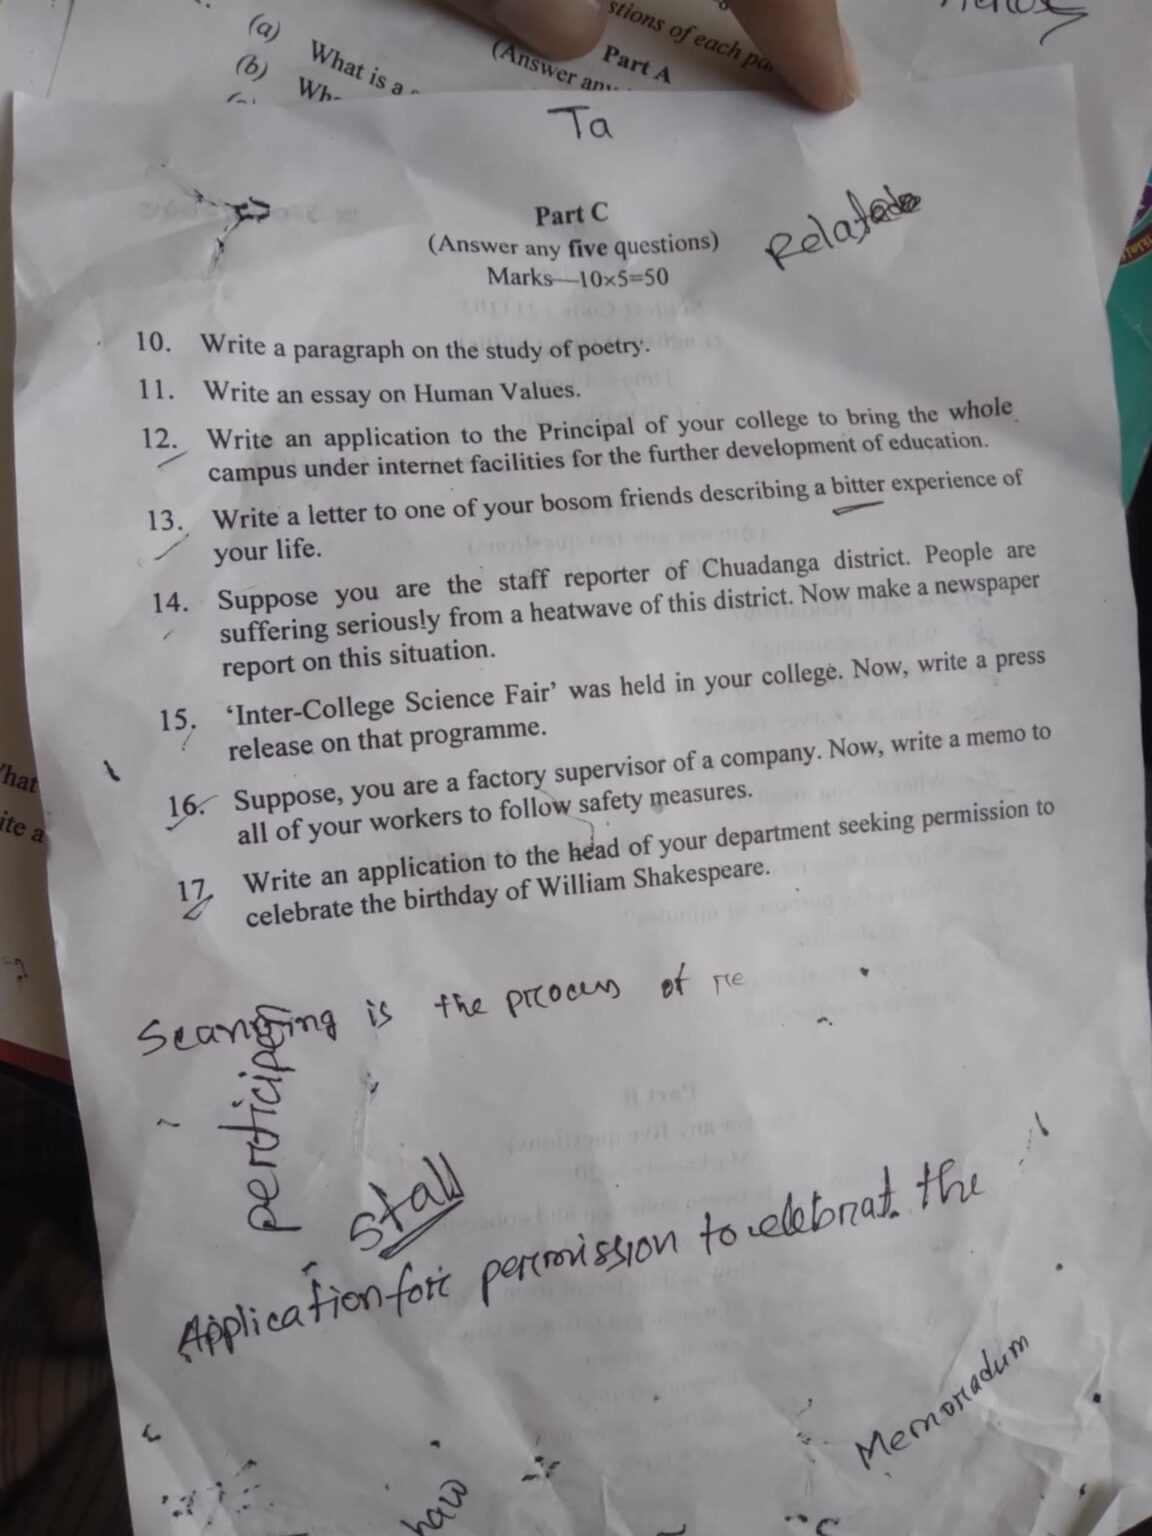 (a) What is a
(b) Wh
stions of each pa
Part A
(Answer any
Ta
Part C
(Answer any five questions)
Marks—10×5=50
10. Write a paragraph on the study of poetry.
11. Write an essay on Human Values.
12. Write an application to the Principal of your college to bring the whole
campus under internet facilities for the further development of education.
13. Write a letter to one of your bosom friends describing a bitter experience of
your life.
14. Suppose you are the staff reporter of Chuadanga district. People are
suffering seriously from a heatwave of this district. Now make a newspaper
report on this situation.
15. ‘Inter-College Science Fair’ was held in your college. Now, write a press
release on that programme.
16. Suppose, you are a factory supervisor of a company. Now, write a memo to
all of your workers to follow safety measures.
17. Write an application to the head of your department seeking permission to
celebrate the birthday of William Shakespeare.
is the process of re
stall
Application for permission to celebrat the
Memoradum
haw
hat
ite a